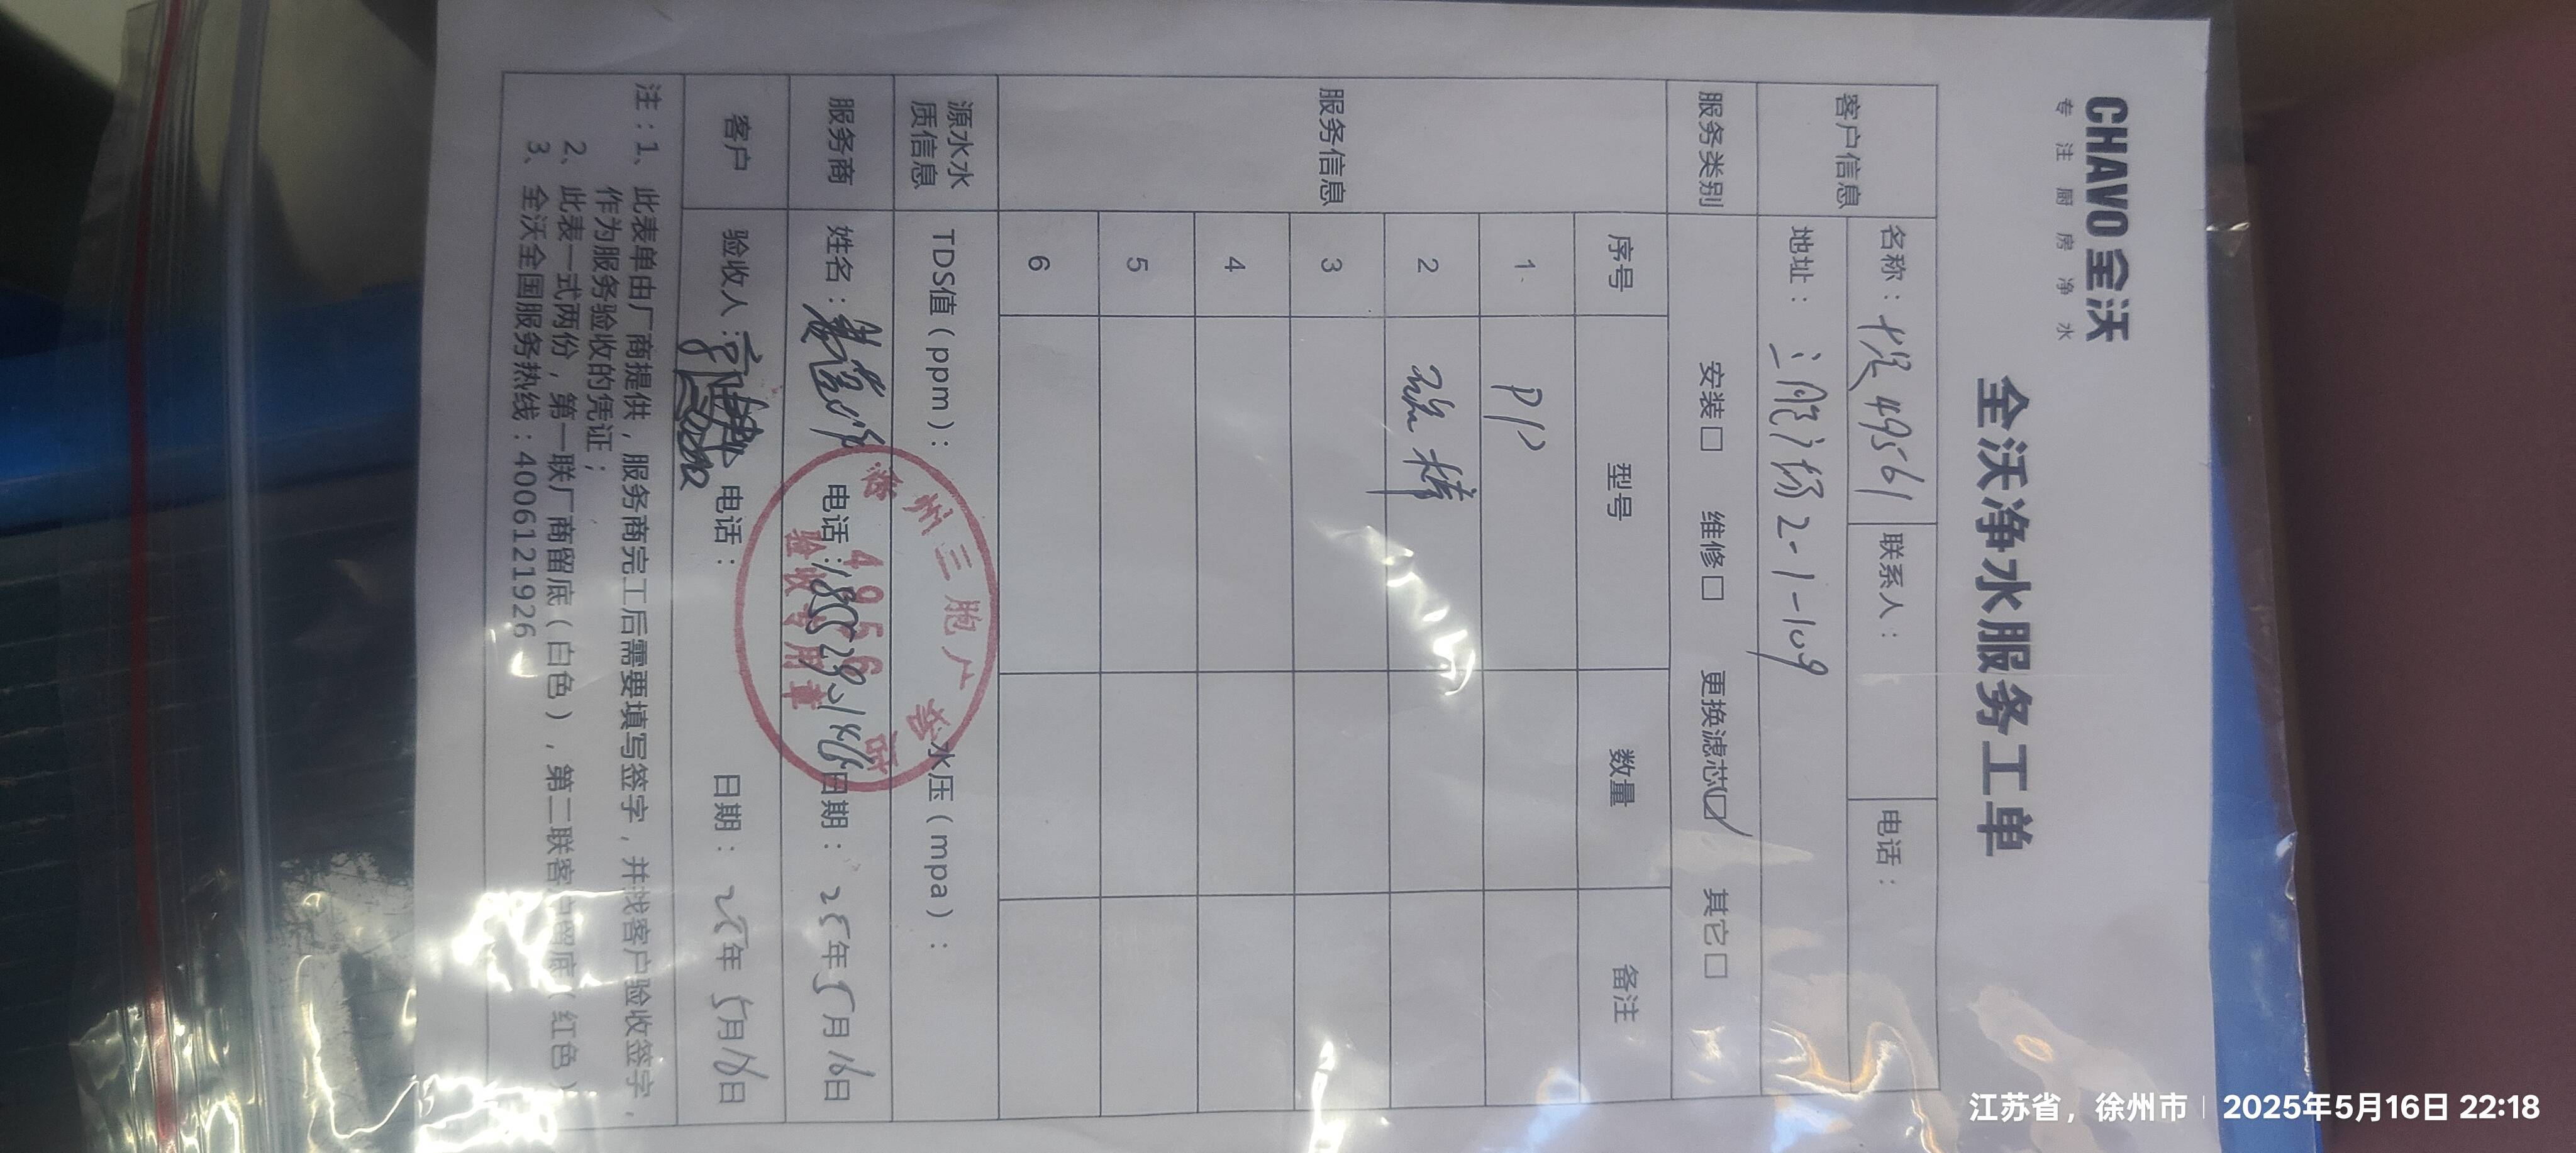 CHAVO 全沃
专注厨房净水
全沃净水服务工单
客户信息
名称：悦49561 联系人： 电话：
地址：三胞广场2-1-109
服务类别 安装□ 维修□ 更换滤芯☑ 其它□
服务信息
序号 型号 数量 备注
1 PP
2 碳棒
3
4
5
6
源水水质信息 TDS值（ppm）： 水压（mpa）：
服务商 姓名： 电话： 日期：25年5月16日
客户 验收人： 电话： 日期：25年5月16日
徐州三胞广场店
49561
验收专用章
注：1、此表单由厂商提供，服务商完工后需要填写签字，并找客户验收签字，
作为服务验收的凭证；
2、此表一式两份，第一联厂商留底（白色），第二联客户留底（红色）
3、全沃全国服务热线：4006121926
江苏省，徐州市 | 2025年5月16日 22:18